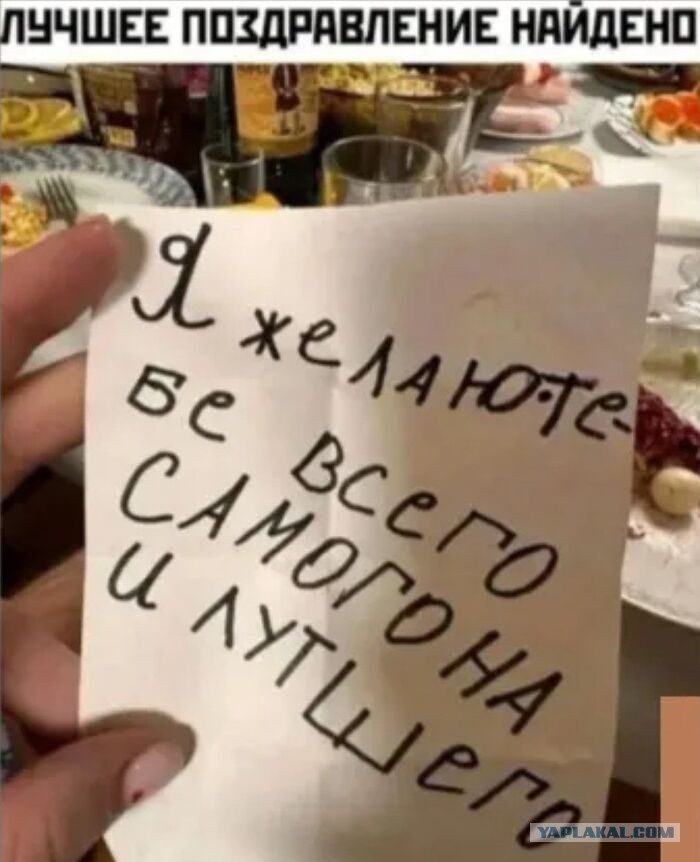 ЛУЧШЕЕ ПОЗДРАВЛЕНИЕ НАЙДЕНО
Я желаю те-
бе всего
САМОГОНА
И лутшего
YAPLAKAL.COM